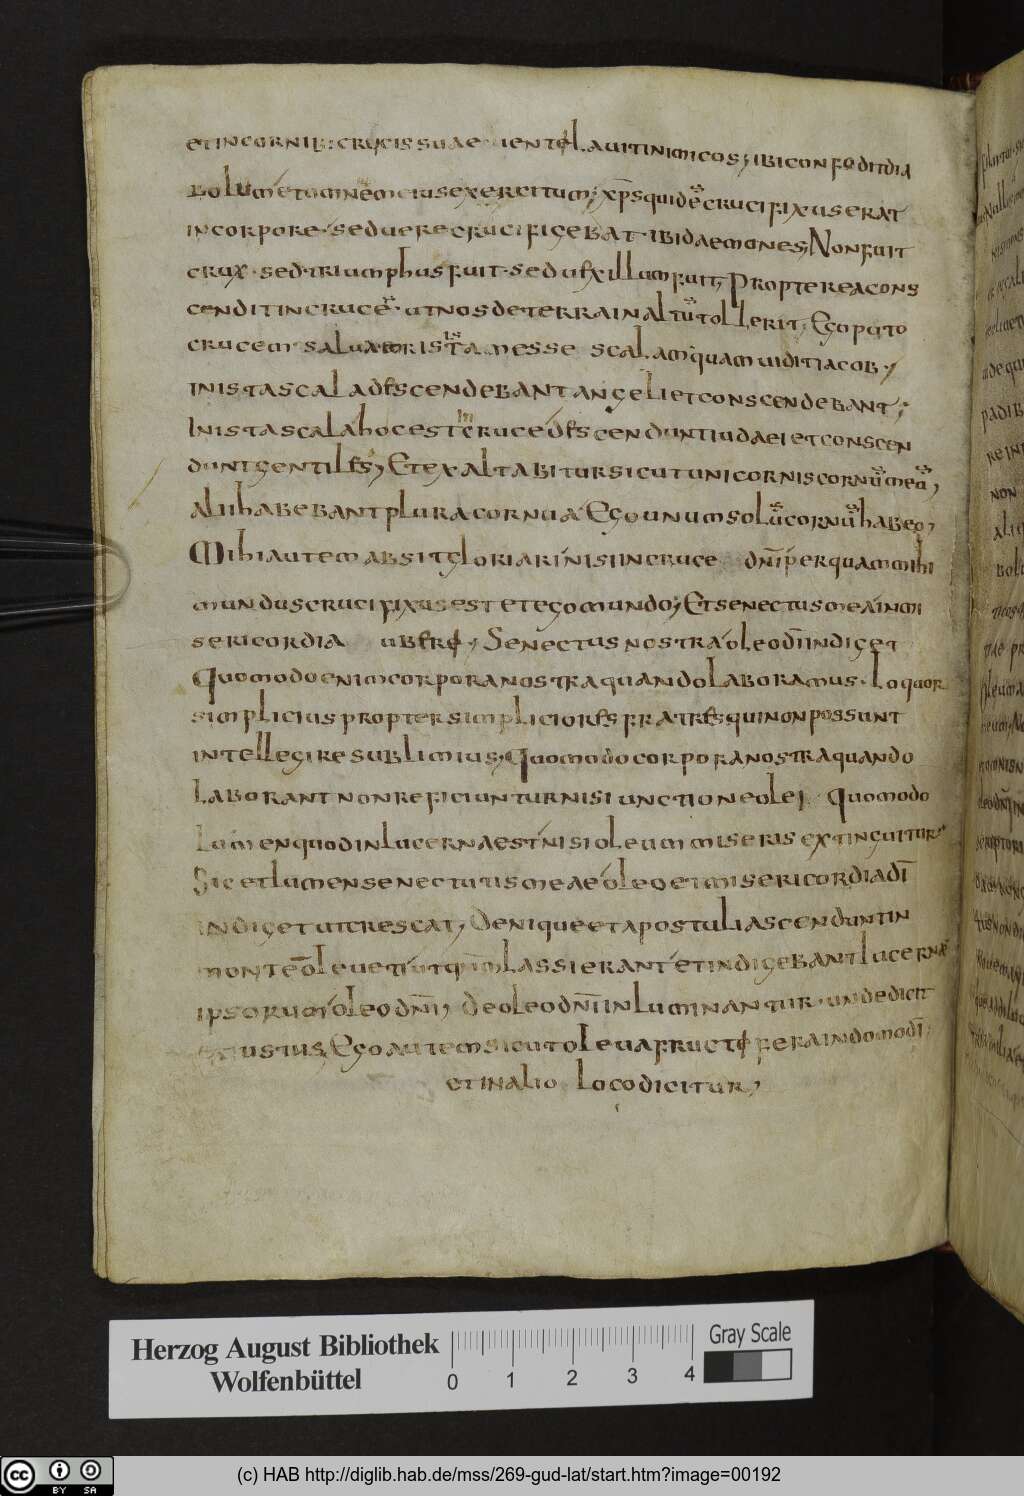 et in cornib; crucis suae uentilauit inimicos, ibi confodit dia
bolum et omnem eius exercitum; xp̄s quidē crucifixus erat
in corpore · sed uere crucifigebat · ibi daemones; Non fuit
crux · sed triumphus fuit · sed uexillum fuit, Propterea cons
cendit in crucē · ut nos de terra in altū tollerit, Ego puto
crucem saluatoris ista messe scalam quam uidit iacob ·,
in ista scala descendebant angeli et conscendebant ;
In ista scala hoc est in cruce descendunt iudaei et conscen
dunt gentiles, Et exaltabitur sicut unicornis cornū meū,
alii habebant plura cornua Ego unum solū cornū habeo,
Mihi autem absit gloriari nisi in cruce dn̄i per quam mihi
mundus crucifixus est et ego mundo; Et senectus mea in mi
sericordia uberi, Senectus nostra oleo dī indiget
Quomodo enim corpora nostra quando laboramus · Loquor
simplicius propter simpliciores fratres qui non possunt
intellegire sublimius, Quomodo corpora nostra quando
laborant non reficiuntur nisi unctione olei Quomodo
Lumen quod in lucerna est nisi oleum miseris extinguitur
Sic et lumen senectutis meae oleo et misericordia dī
indiget ut crescat, Denique et apostuli ascendunt in
monte oleueti lassi erant et indigebant lucernae
ipsorum oleo dn̄i, de oleo dn̄i inluminantur · unde dicit
iustus, Ego autem sicut oleua fructifera in domo dī
et in alio loco dicitur,
Herzog August Bibliothek
Wolfenbüttel
0 1 2 3 4
Gray Scale
(c) HAB http://diglib.hab.de/mss/269-gud-lat/start.htm?image=00192
cc BY SA